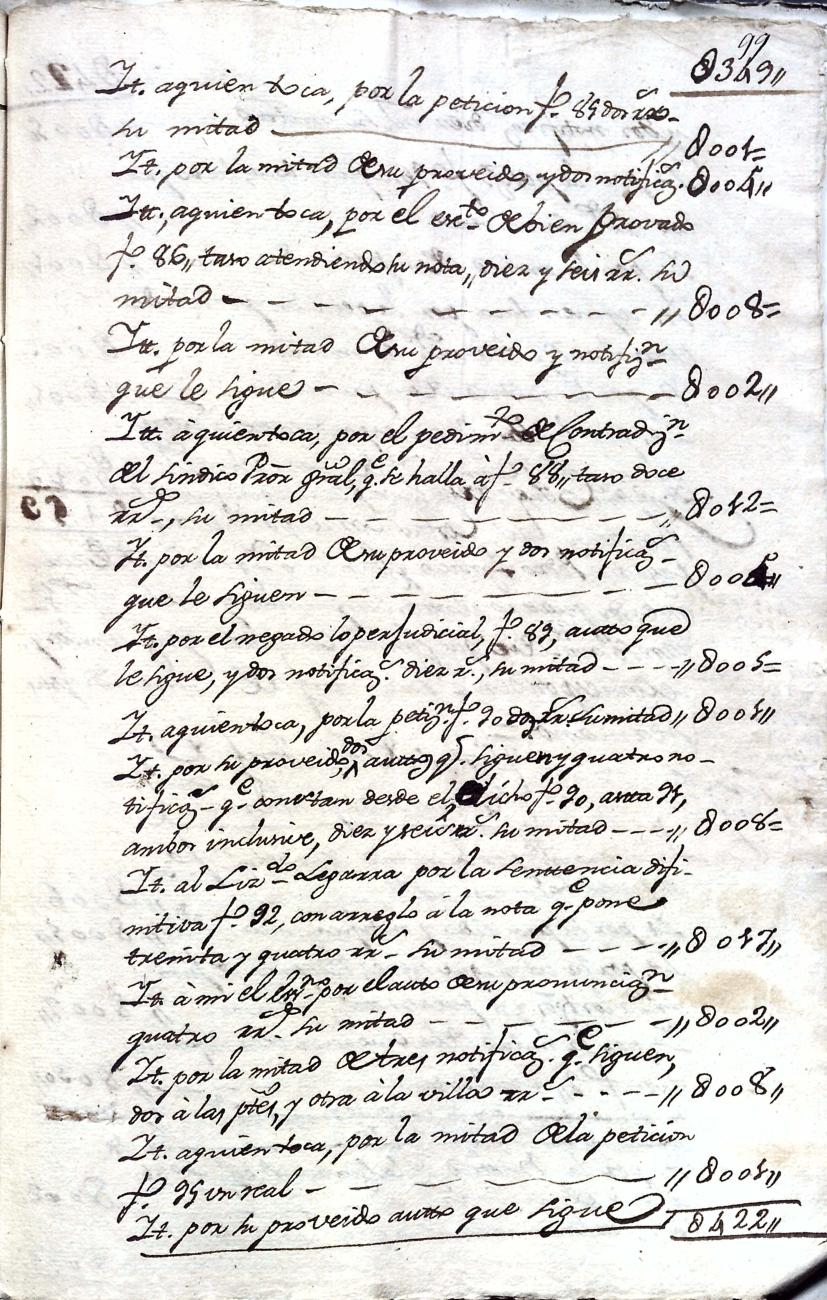 99
8349,,
It. aquien toca, por la peticion f.º 85 dos rrs
su mitad ,, 8001=
It. por la mitad de su proveido, y dos notificaz.s 8004,,
Itt. aquien toca, por el escto de bien Provado
f.º 86,, taso atendiendo su nota,, diez y seis rrs. su
mitad - - - - - ,, 8008=
Itt. por la mitad de su proveido y notifizn
que le sigue - - - - 8002,,
Itt. à quien toca, por el pedimto de Contradizn
del sindico Pror gral, q.e se halla à f.º 88,, taso doce
rrs, su mitad - - - - - ,, 8012=
It. por la mitad de su proveido y dos notificazs
que le siguen - - - - -
It. por el negado lo perjudicial, f.º 89, auto que
le sigue, y dos notificazs. diez rs., su mitad - - - ,, 8005=
It. aquien toca, por la petizn. f.º 90 dos rrs. su mitad ,, 8001,,
It. por su proveido, dos autos q.e siguen y quatro no-
tificazs q.e constan desde el dicho f.º 90, asta 91,
ambos inclusive, diez y seis rrs. su mitad - - - ,, 8008=
It. al Lizdo Legarra por la sentencia difi-
nitiva f.º 92, con arreglo à la nota q.e pone
treinta y quatro rrs su mitad - - - ,, 8017,,
It. à mi el essno por el auto de su pronunciazn
quatro rrs. su mitad - - - - ,, 8002,,
It. por la mitad de tres notificazs. q.e siguen,
dos à las ptes, y otra à la villa rrs - - - ,, 8008,,
It. aquien toca, por la mitad de la peticion
f.º 95 un real - - - - ,, 8001,,
It. por su proveido autto que sigue 8422,,